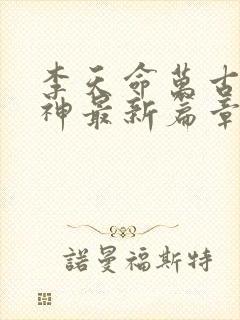 李天命萬古
神最新篇章
諾曼福斯特